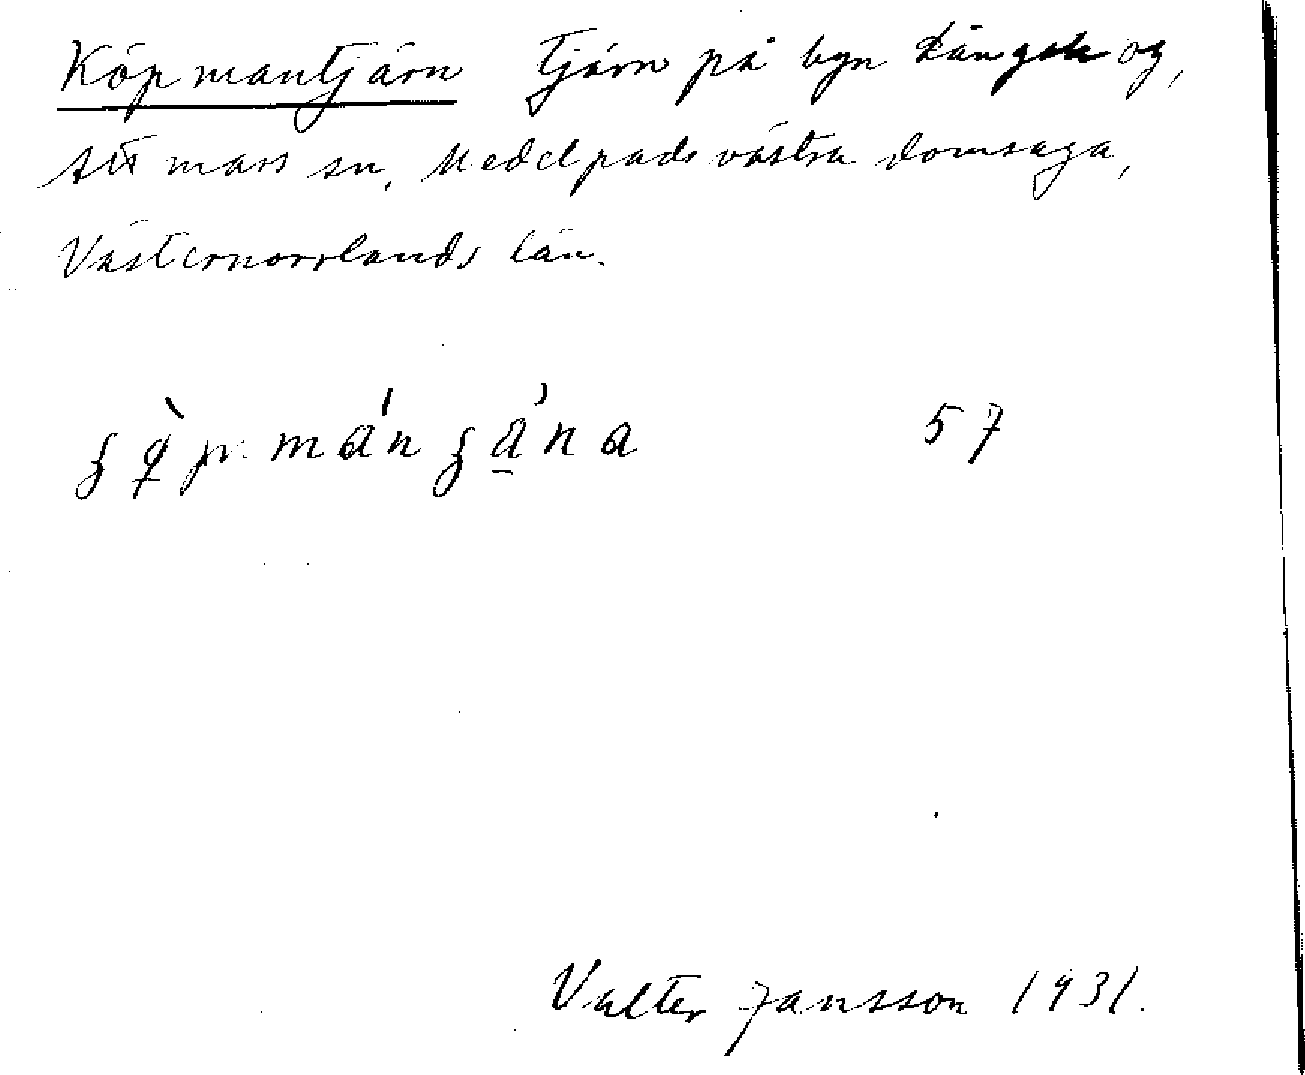 Köpmantjärn Tjärn på byn Längsle äg,
Attmars sn, Medelpads västra domsaga,
Västernorrlands län.
57
Valter Jansson 1931.